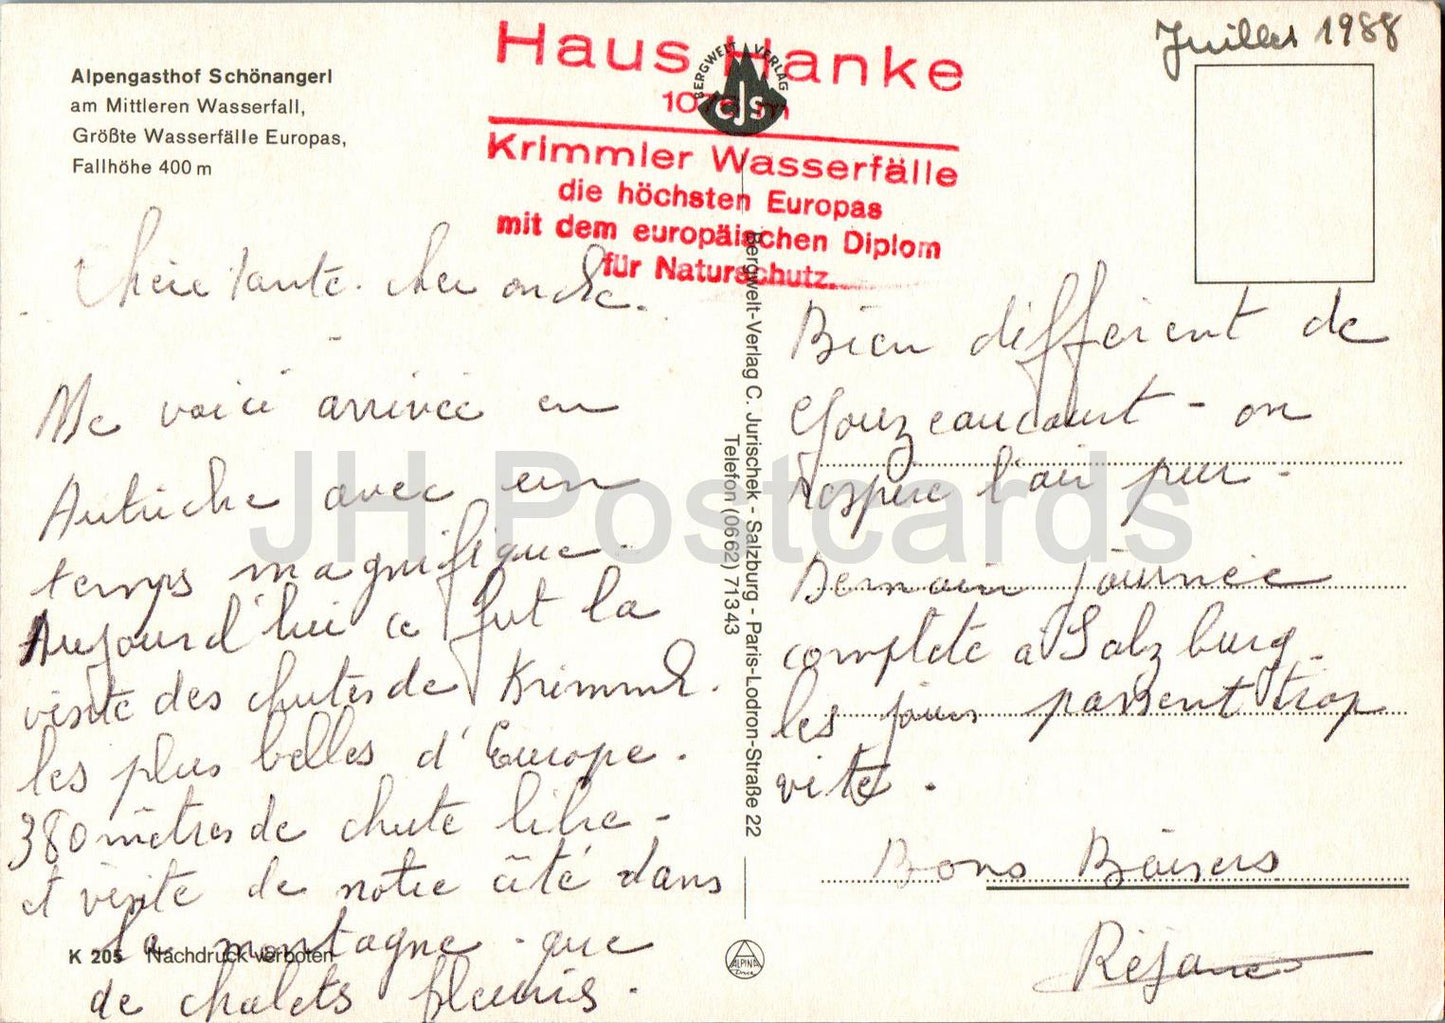 Alpengasthof Schönangerl
am Mittleren Wasserfall,
Größte Wasserfälle Europas,
Fallhöhe 400 m
Haus Hanke
BERGWELT VERLAG
CJS
Krimmler Wasserfälle
die höchsten Europas
mit dem europäischen Diplom
für Naturschutz.
Juillet 1988
Chère tante. cher oncle.
Me voici arrivée en
Autriche avec un
temps magnifique.
Aujourd'hui ce fut la
visite des chutes de Krimml.
les plus belles d'Europe.
380 mètres de chute libre -
et visite de notre côté dans
la montagne. que
de chalets fleuris.
K 205 Nachdruck verboten
Bergwelt-Verlag C. Jurischek - Salzburg - Paris-Lodron-Straße 22
Telefon (0662) 71343
ALPINA
Druck
Bien différent de
Gouzeaucourt - on
respire l'air pur -
Demain journée
complète à Salzburg.
les jours passent trop
vite.
Bons Baisers
Réjane
JH Postcards